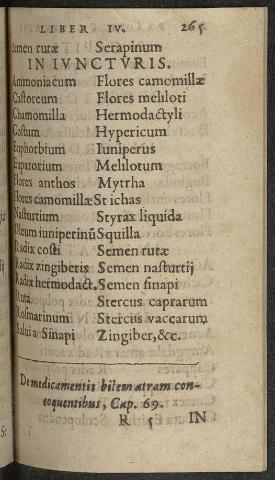 LIBER IV. 265
Semen rutæ Serapinum
IN IVNCTVRIS.
Ammoniacum Flores camomillæ
Castoreum Flores meliloti
Chamomilla Hermodactyli
Costum Hypericum
Euphorbium Iuniperus
Eupatorium Melilotum
Flores anthos Myrrha
Flores camomillæ Stichas
Nasturtium Styrax liquida
Oleum iuniperinũ Squilla
Radix costi Semen rutæ
Radix zingiberis Semen nasturtij
Radix hermodact. Semen sinapi
Ruta Stercus caprarum
Rosmarinum Stercus vaccarum
Salui a Sinapi Zingiber, &c.
De medicamentis bilem atram con-
coquentibus, Cap. 69.
R 5 IN